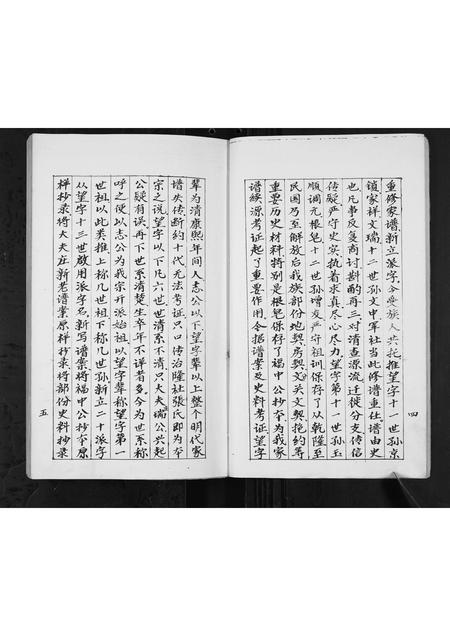 重修家谱新立派字令受族人共托推望字十一世孙京
镇家祥文瑞十二世孙文中军社当此修谱重任谱由史
也凡事反复商讨斟酌再三对清查源流迁徙分支传信
传疑严守史实执着求真尽心尽力望字第十一世孙玉
顺调元根笔十二世孙增友严守祖训保存了从乾隆至
民国乃至解放后我族部份地契房契文契英文契挽约等
重要历史材料特别是根笔保存了福中公抄本为我家
谱续源考证起了重要作用今把谱案及史料考证望字
四
辈为清康熙年间人志公以下望字辈以上整个明代家
谱失传断约十代无法考证只口传治隆社张氏即为本
宗之说望字以下凡六世世清系不清只大夫瑞公兴起
公疑有误再下世系清楚生卒年不详者多今为世系称
呼之便以志公为我宗开派始祖以望字辈称望字第一
世祖以此类推上称几世祖下称几世孙新立二十派字
从望字十三世启用派字名新写谱案将福中公抄本原
样抄录将大夫庄新老谱案原样抄录将部份史料抄录
五